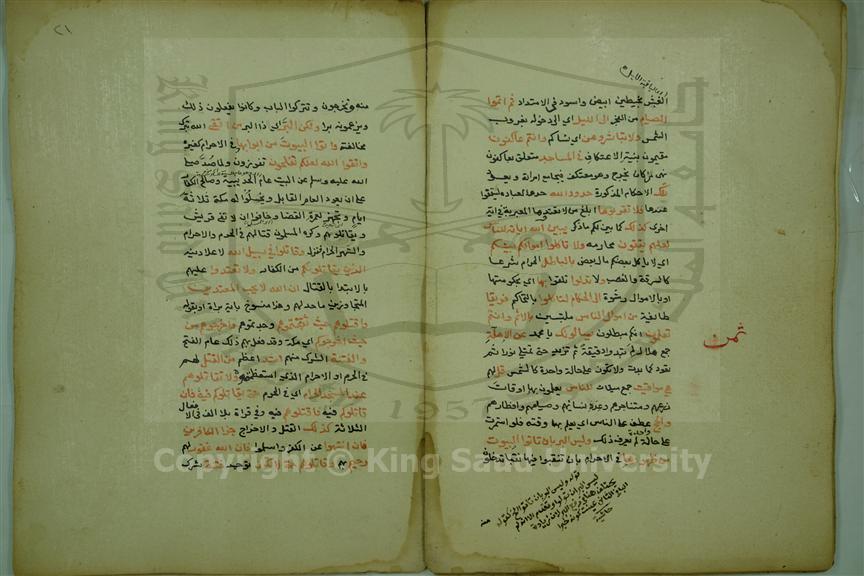 الغبش بخيطين ابيض واسود في الامتداد ثم اتموا
الصيام من الفجر الى الليل اي الى دخوله بغروب
الشمس ولا تباشروهن اي نساءكم وانتم عاكفون
مقيمون بنية الاعتكاف في المساجد متعلق بعاكفون
نهى لمن كان يخرج وهو معتكف فيجامع امراته ويعود
تلك الاحكام المذكورة حدود الله حدها لعباده ليقفوا
عندها فلا تقربوها ابلغ من لا تعتدوها المعبر به في اية
اخرى كذلك كما بين لكم ما ذكر يبين الله اياته للناس
لعلهم يتقون محارمه ولا تاكلوا اموالكم بينكم
اي لا ياكل بعضكم مال بعض بالباطل الحرام شرعا
كالسرقة والغصب ولا تدلوا تلقوا بها اي بحكومتها
او بالاموال رشوة الى الحكام لتاكلوا بالتحاكم فريقا
طائفة من اموال الناس ملتبسين بالاثم وانتم
تعلمون انكم مبطلون يسالونك يا محمد عن الاهلة
جمع هلال لم تبدو دقيقة ثم تزيد حتى تمتلئ نورا ثم
تعود كما بدت ولا تكون على حالة واحدة كالشمس قل لهم
هي مواقيت جمع ميقات للناس يعلمون بها اوقات
زرعهم ومتاجرهم وعدة نسائهم وصيامهم وافطارهم
والحج عطف على الناس اي يعلم بها وقته فلو استمرت
على حالة واحدة لم يعرف ذلك وليس البر بان تاتوا البيوت
من ظهورها في الاحرام بان تنقبوا فيها نقبا تدخلون
ثمن
حاشية
منه
٢١
منه وتخرجون وتتركوا الباب وكانوا يفعلون ذلك
ويزعمونه برا ولكن البر اي ذا البر من اتقى الله بترك
مخالفته واتوا البيوت من ابوابها في الاحرام كغيره
واتقوا الله لعلكم تفلحون تفوزون ولما صد صلى
الله عليه وسلم عن البيت عام الحديبية وصالح الكفار
على ان يعود العام القابل ويخلوا له مكة ثلاثة
ايام وتجهز لعمرة القضا وخافوا ان لا تفي قريش
ويقاتلوهم وكره المسلمون قتالهم في الحرم والاحرام
والشهر الحرام فنزل وقاتلوا في سبيل الله لاعلاء دينه
الذين يقاتلونكم من الكفار ولا تعتدوا عليهم
بالابتدا بالقتال ان الله لا يحب المعتدين
المتجاوزين ما حد لهم وهذا منسوخ باية براة او بقوله
واقتلوهم حيث ثقفتموهم وجدتموهم واخرجوهم من
حيث اخرجوكم اي مكة وقد فعل بهم ذلك عام الفتح
والفتنة الشرك منهم اشد اعظم من القتل لهم
في الحرم او الاحرام الذي استعظمتموه ولا تقاتلوهم
عند المسجد الحرام اي في الحرم حتى يقاتلوكم فيه فان
قاتلوكم فيه فاقتلوهم فيه وفي قراة بلا الف في الافعال
الثلاثة كذلك القتل والاخراج جزاء الكافرين
فان انتهوا عن الكفر واسلموا فان الله غفور لهم
رحيم بهم وقاتلوهم حتى لا تكون توجد فتنة شرك
Copyright © King Saud University
1957